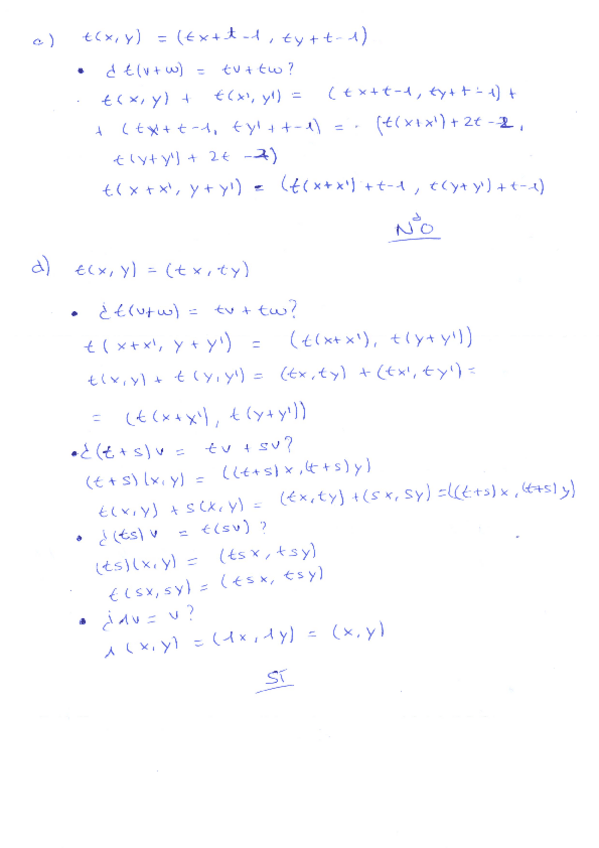 c) t(x,y) = (tx+t-1, ty+t-1)
• ¿t(v+w) = tv+tw?
t(x,y) + t(x',y') = (tx+t-1, ty+t-1) +
+ (tx'+t-1, ty'+t-1) = (t(x+x')+2t-2,
t(y+y')+2t-2)
t(x+x', y+y') = (t(x+x')+t-1, t(y+y')+t-1)
NO
d) t(x,y) = (tx,ty)
• ¿t(v+w) = tv+tw?
t(x+x', y+y') = (t(x+x'), t(y+y'))
t(x,y) + t(y,y') = (tx,ty) + (tx',ty') =
= (t(x+x'), t(y+y'))
• ¿(t+s)v = tv + sv?
(t+s)(x,y) = ((t+s)x,(t+s)y)
t(x,y) + s(x,y) = (tx,ty)+(sx,sy) = ((t+s)x,(t+s)y)
• ¿(ts)v = t(sv)?
(ts)(x,y) = (tsx, tsy)
t(sx,sy) = (tsx, tsy)
• ¿1v = v?
1(x,y) = (1x,1y) = (x,y)
SÍ